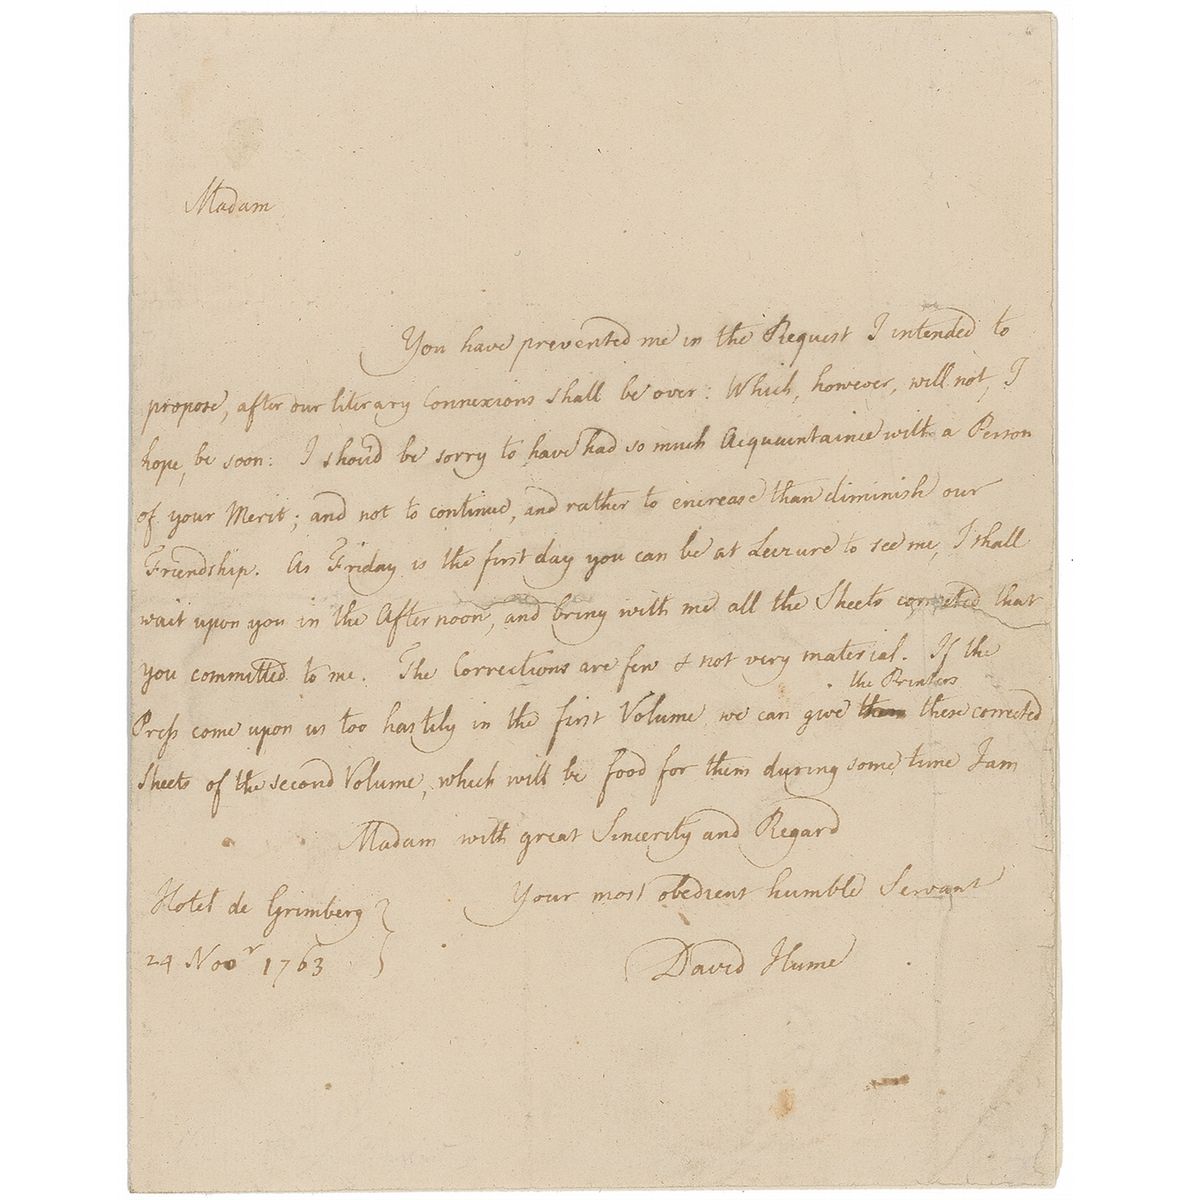 Madam
You have prevented me in the Request I intended to
propose, after our literary Connexions shall be over: Which, however, will not, I
hope, be soon: I shou'd be sorry to have had so much Acquaintaince with a Person
of your Merit; and not to continue, and rather to encrease than diminish our
Friendship. As Friday is the first day you can be at Leizure to see me, I shall
wait upon you in the Afternoon, and bring with me all the Sheets corrected that
you committed to me. The Corrections are few & not very material. If the
the Printers
Press come upon us too hastily in the first Volume, we can give them these corrected
Sheets of the second Volume, which will be food for them during some time I am
Madam with great Sincerity and Regard
Your most obedient humble Servant
Hotel de Grimberg
24 Novr 1763
David Hume